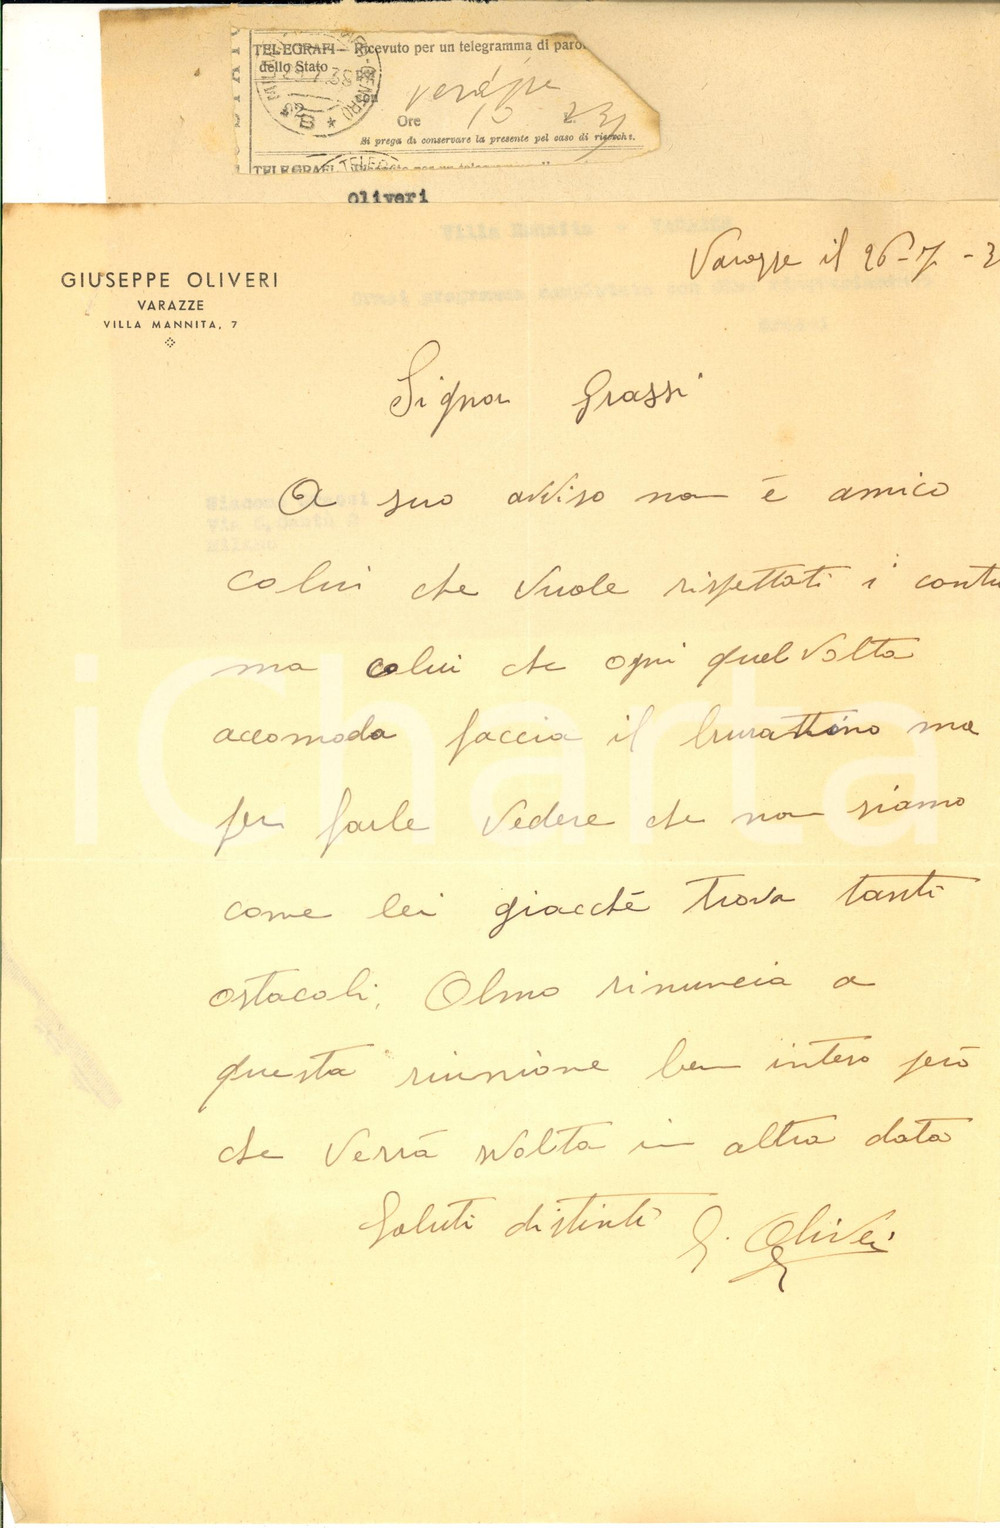 TELEGRAFI
dello Stato
Ricevuto per un telegramma di
Ore
Si prega di conservare la presente pel caso di rischi.
Oliveri
Villa Mannita - VARAZZE
GIUSEPPE OLIVERI
VARAZZE
VILLA MANNITA, 7
Varazze il 26-7-3
Signor Grassi
A suo avviso non è amico
colui che vuole rispettati i
ma colui che ogni qual volta
accomoda faccia il burattino ma
per farle vedere che non siamo
come lei giacchè trova tanti
ostacoli, Olmo rinuncia a
questa riunione ben inteso però
che verrà svolta in altra data
Saluti distinti G. Oliveri
iCharta